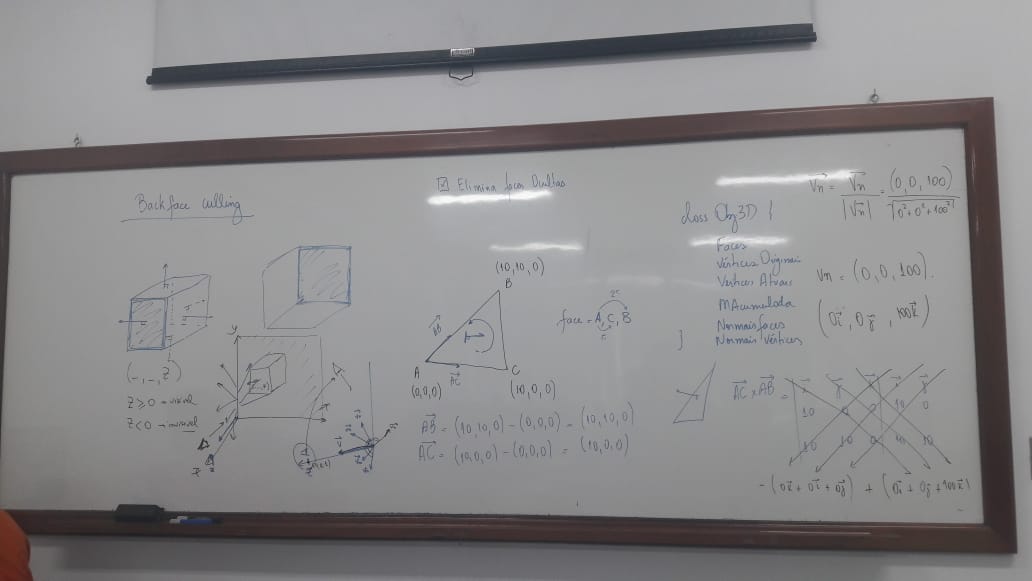 Backface culling
(-,-,z)
z≥0 → visível
z<0 → invisível
Elimina faces Ocultas
(10,10,0)
B
AB
A
AC
C
(0,0,0)
(10,0,0)
face = A, C, B
AB = (10,10,0) - (0,0,0) = (10,10,0)
AC = (10,0,0) - (0,0,0) = (10,0,0)
class Obj3D {
Faces
Vértices Originais
Vertices Atuais
MAcumulada
Normais faces
Normais Vértices
}
Vn = Vn / |Vn| = (0,0,100) / √0²+0²+100²
Vn = (0,0,100).
(0i, 0j, 100k)
AC x AB =
-(0k + 0i + 0j) + (0i + 0j + 100k)